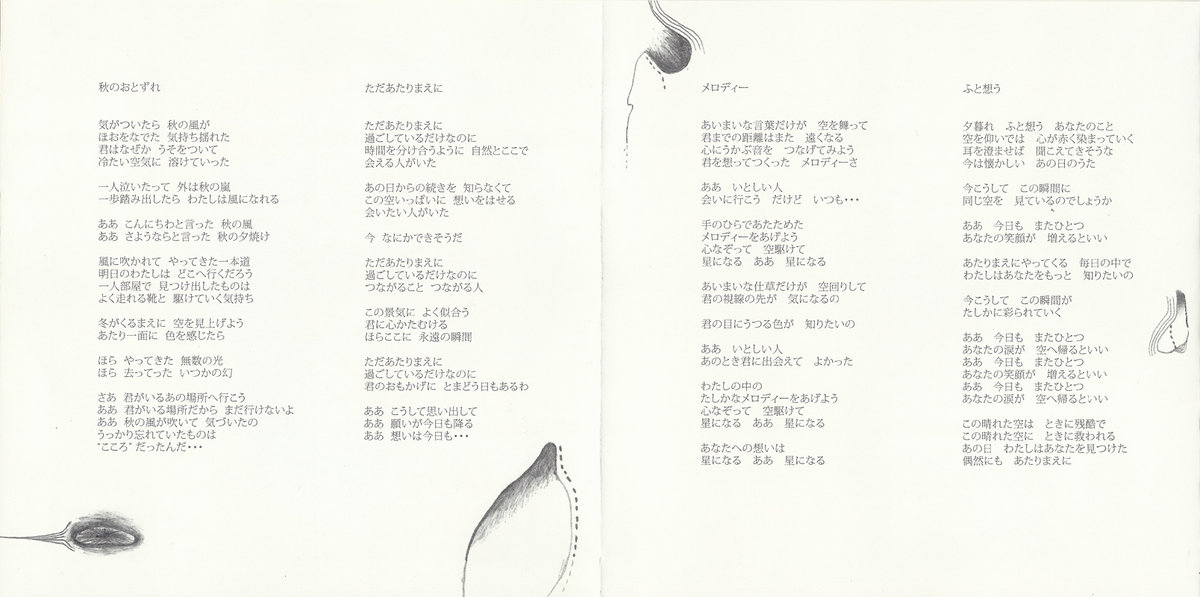 秋のおとずれ
気がついたら 秋の風が
ほおをなでた 気持ち揺れた
君はなぜか うそをついて
冷たい空気に 溶けていった
一人泣いたって 外は秋の嵐
一歩踏み出したら わたしは風になれる
ああ こんにちわと言った 秋の風
ああ さようならと言った 秋の夕焼け
風に吹かれて やってきた一本道
明日のわたしは どこへ行くだろう
一人部屋で 見つけ出したものは
よく走れる靴と 駆けていく気持ち
冬がくるまえに 空を見上げよう
あたり一面に 色を感じたら
ほら やってきた 無数の光
ほら 去ってった いつかの幻
さあ 君がいるあの場所へ行こう
ああ 君がいる場所だから まだ行けないよ
ああ 秋の風が吹いて 気づいたの
うっかり忘れていたものは
“こころ” だったんだ・・・
ただあたりまえに
ただあたりまえに
過ごしているだけなのに
時間を分け合うように 自然とここで
会える人がいた
あの日からの続きを 知らなくて
この空いっぱいに 想いをはせる
会いたい人がいた
今 なにかできそうだ
ただあたりまえに
過ごしているだけなのに
つながること つながる人
この景気に よく似合う
君に心かたむける
ほらここに 永遠の瞬間
ただあたりまえに
過ごしているだけなのに
君のおもかげに とまどう日もあるわ
ああ こうして思い出して
ああ 願いが今日も降る
ああ 想いは今日も・・・
メロディー
あいまいな言葉だけが 空を舞って
君までの距離はまた 遠くなる
心にうかぶ音を つなげてみよう
君を想ってつくった メロディーさ
ああ いとしい人
会いに行こう だけど いつも・・・
手のひらであたためた
メロディーをあげよう
心なぞって 空駆けて
星になる ああ 星になる
あいまいな仕草だけが 空回りして
君の視線の先が 気になるの
君の目にうつる色が 知りたいの
ああ いとしい人
あのとき君に出会えて よかった
わたしの中の
たしかなメロディーをあげよう
心なぞって 空駆けて
星になる ああ 星になる
あなたへの想いは
星になる ああ 星になる
ふと想う
夕暮れ ふと想う あなたのこと
空を仰いでは 心が赤く染まっていく
耳を澄ませば 聞こえてきそうな
今は懐かしい あの日のうた
今こうして この瞬間に
同じ空を 見ているのでしょうか
ああ 今日も またひとつ
あなたの笑顔が 増えるといい
あたりまえにやってくる 毎日の中で
わたしはあなたをもっと 知りたいの
今こうして この瞬間が
たしかに彩られていく
ああ 今日も またひとつ
あなたの涙が 空へ帰るといい
ああ 今日も またひとつ
あなたの笑顔が 増えるといい
ああ 今日も またひとつ
あなたの涙が 空へ帰るといい
この晴れた空は ときに残酷で
この晴れた空に ときに救われる
あの日 わたしはあなたを見つけた
偶然にも あたりまえに